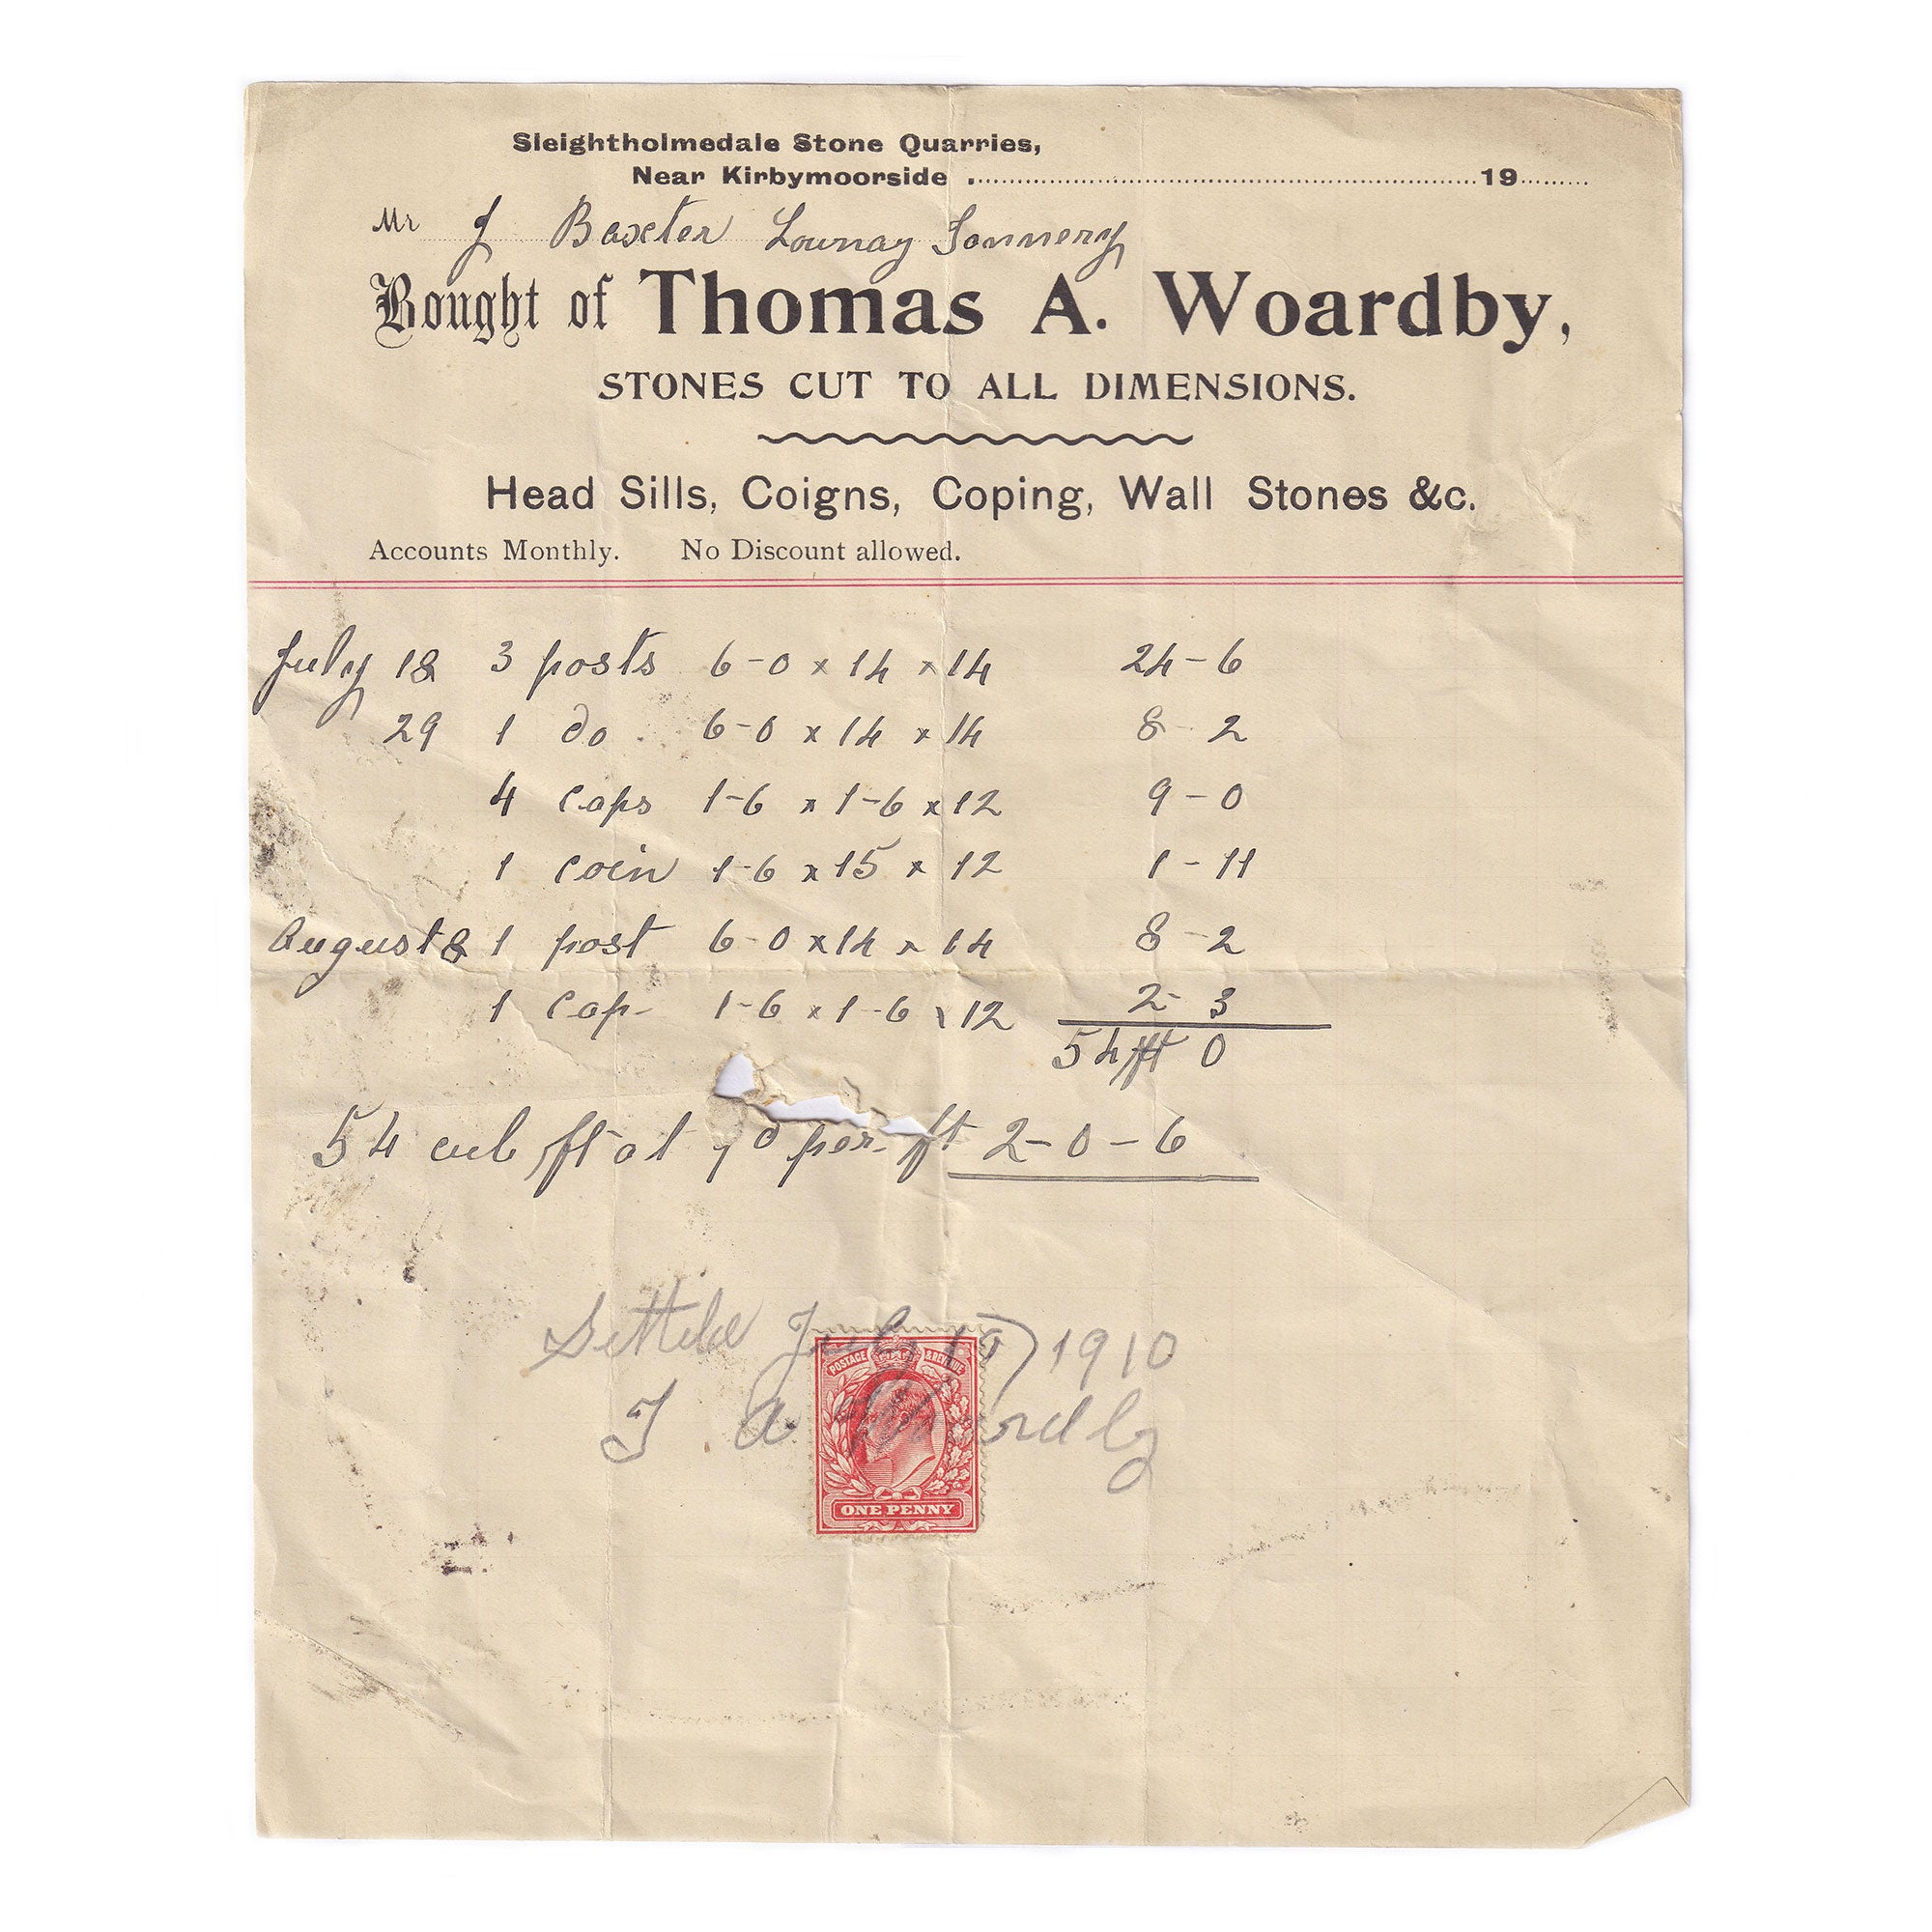 Sleightholmedale Stone Quarries,
Near Kirbymoorside . 19
Mr J Baxter Lownay Tonnery
Bought of Thomas A. Woardby,
STONES CUT TO ALL DIMENSIONS.
Head Sills, Coigns, Coping, Wall Stones &c.
Accounts Monthly. No Discount allowed.
July 18 3 posts 6-0 x 14 x 14 24-6
29 1 do . 6-0 x 14 x 14 8 2
4 caps 1-6 x 1-6 x 12 9-0
1 coin 1-6 x 15 x 12 1-11
August 8 1 post 6-0 x 14 x 14 8-2
1 cap- 1-6 x 1-6 x 12 2-3
54 ft 0
54 cub ft at d per ft 2-0-6
Settled July 1910
T. A Woardby
POSTAGE & REVENUE
ONE PENNY